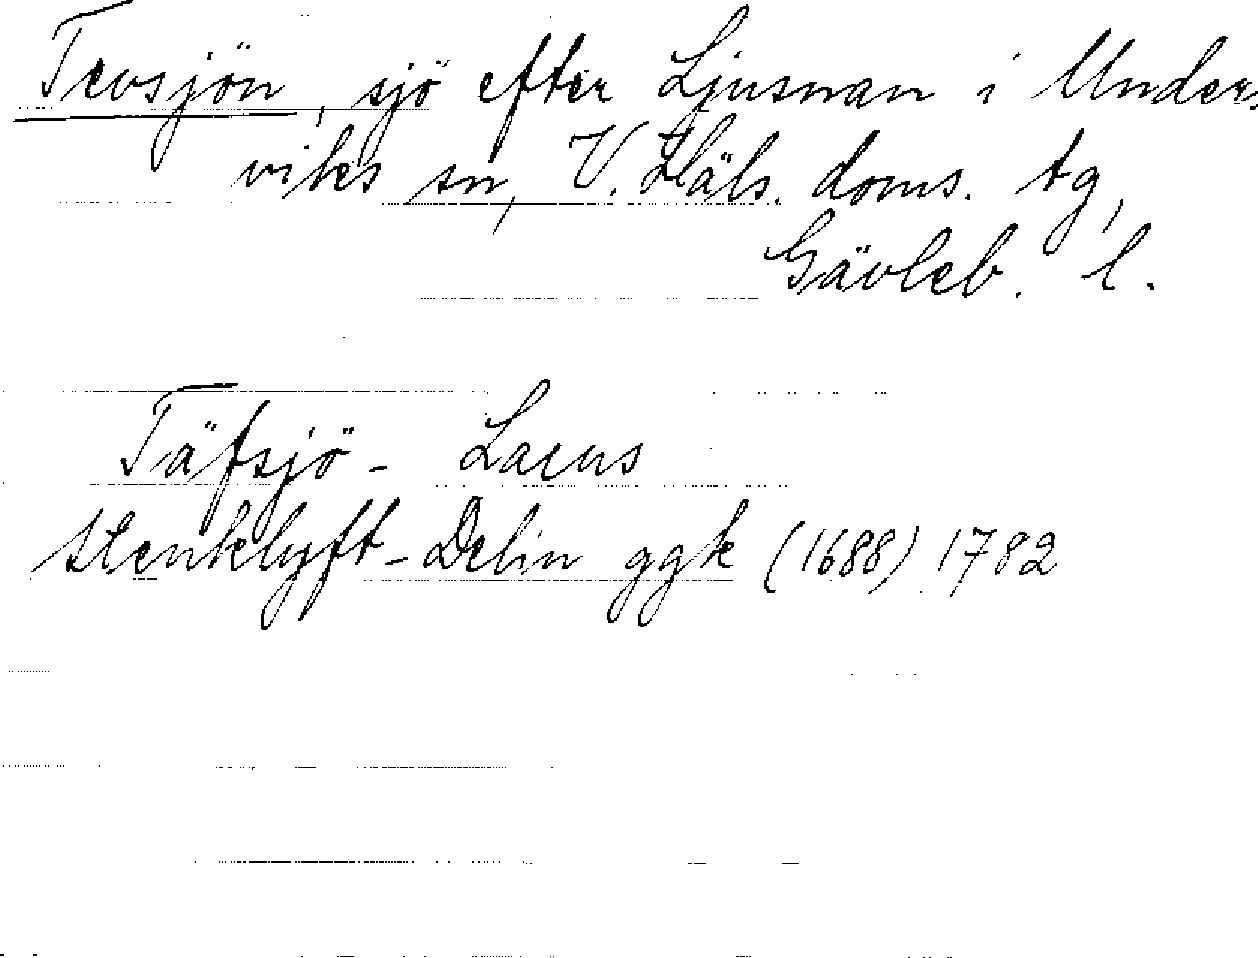 Tevsjön, sjö efter Ljusnan i Under-
viks sn, V. Häls. doms. tg,
Gävleb. l.
Täfsjö- Lacus
Stenklyft-Delin ggk (1688) 1782